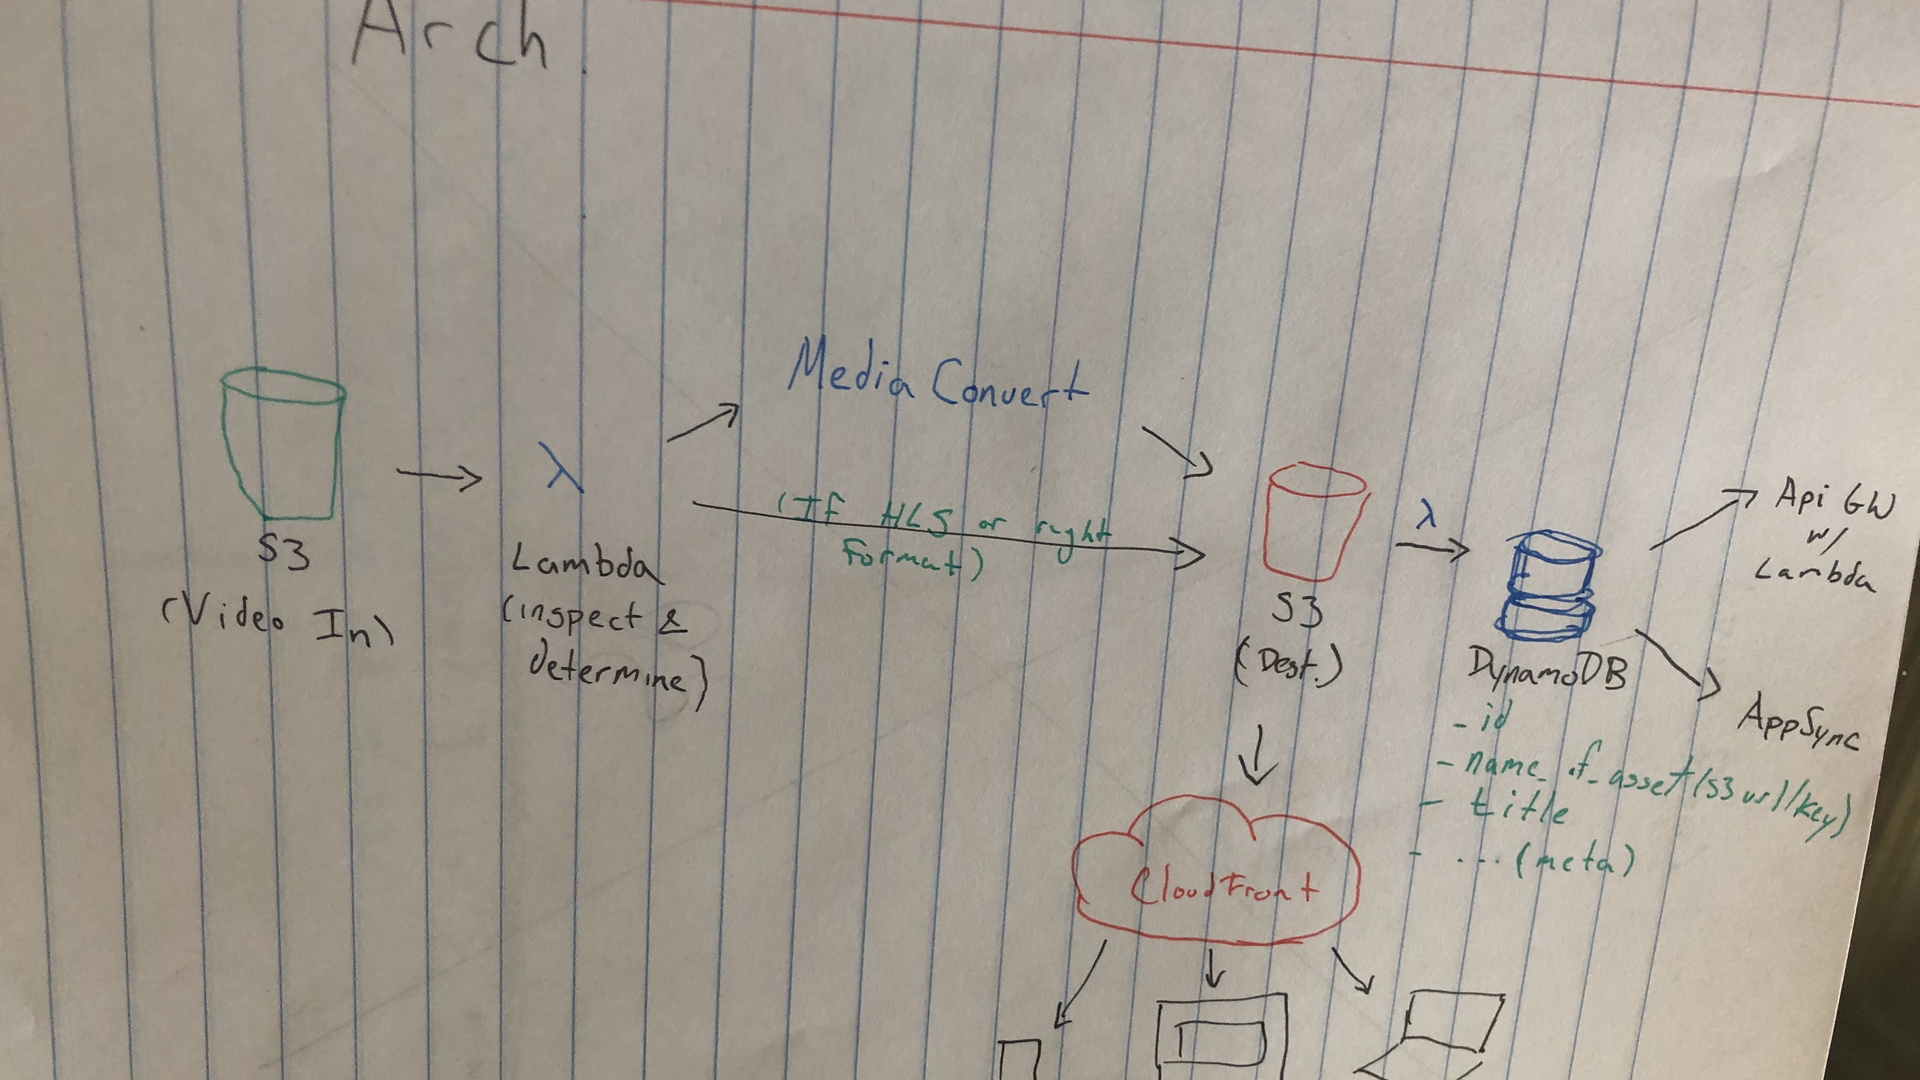 Arch
Media Convert
λ
(If HLS or right
format)
S3
(Video In)
Lambda
(inspect &
determine)
S3
(Dest.)
λ
DynamoDB
- id
- name_of_asset(S3 url/key)
- title
- ...(meta)
Api GW
w/
Lambda
AppSync
CloudFront